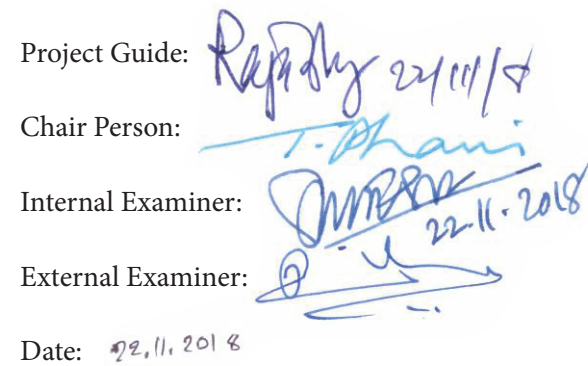 Project Guide: 22/11/18
Chair Person: T. Dhani
Internal Examiner:
22.11.2018
External Examiner:
Date: 22.11.2018